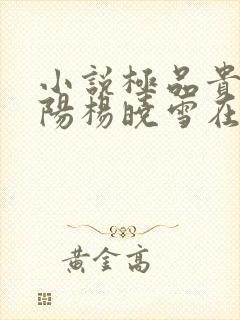 小說極品貴
陽楊曉雪在
黃金高